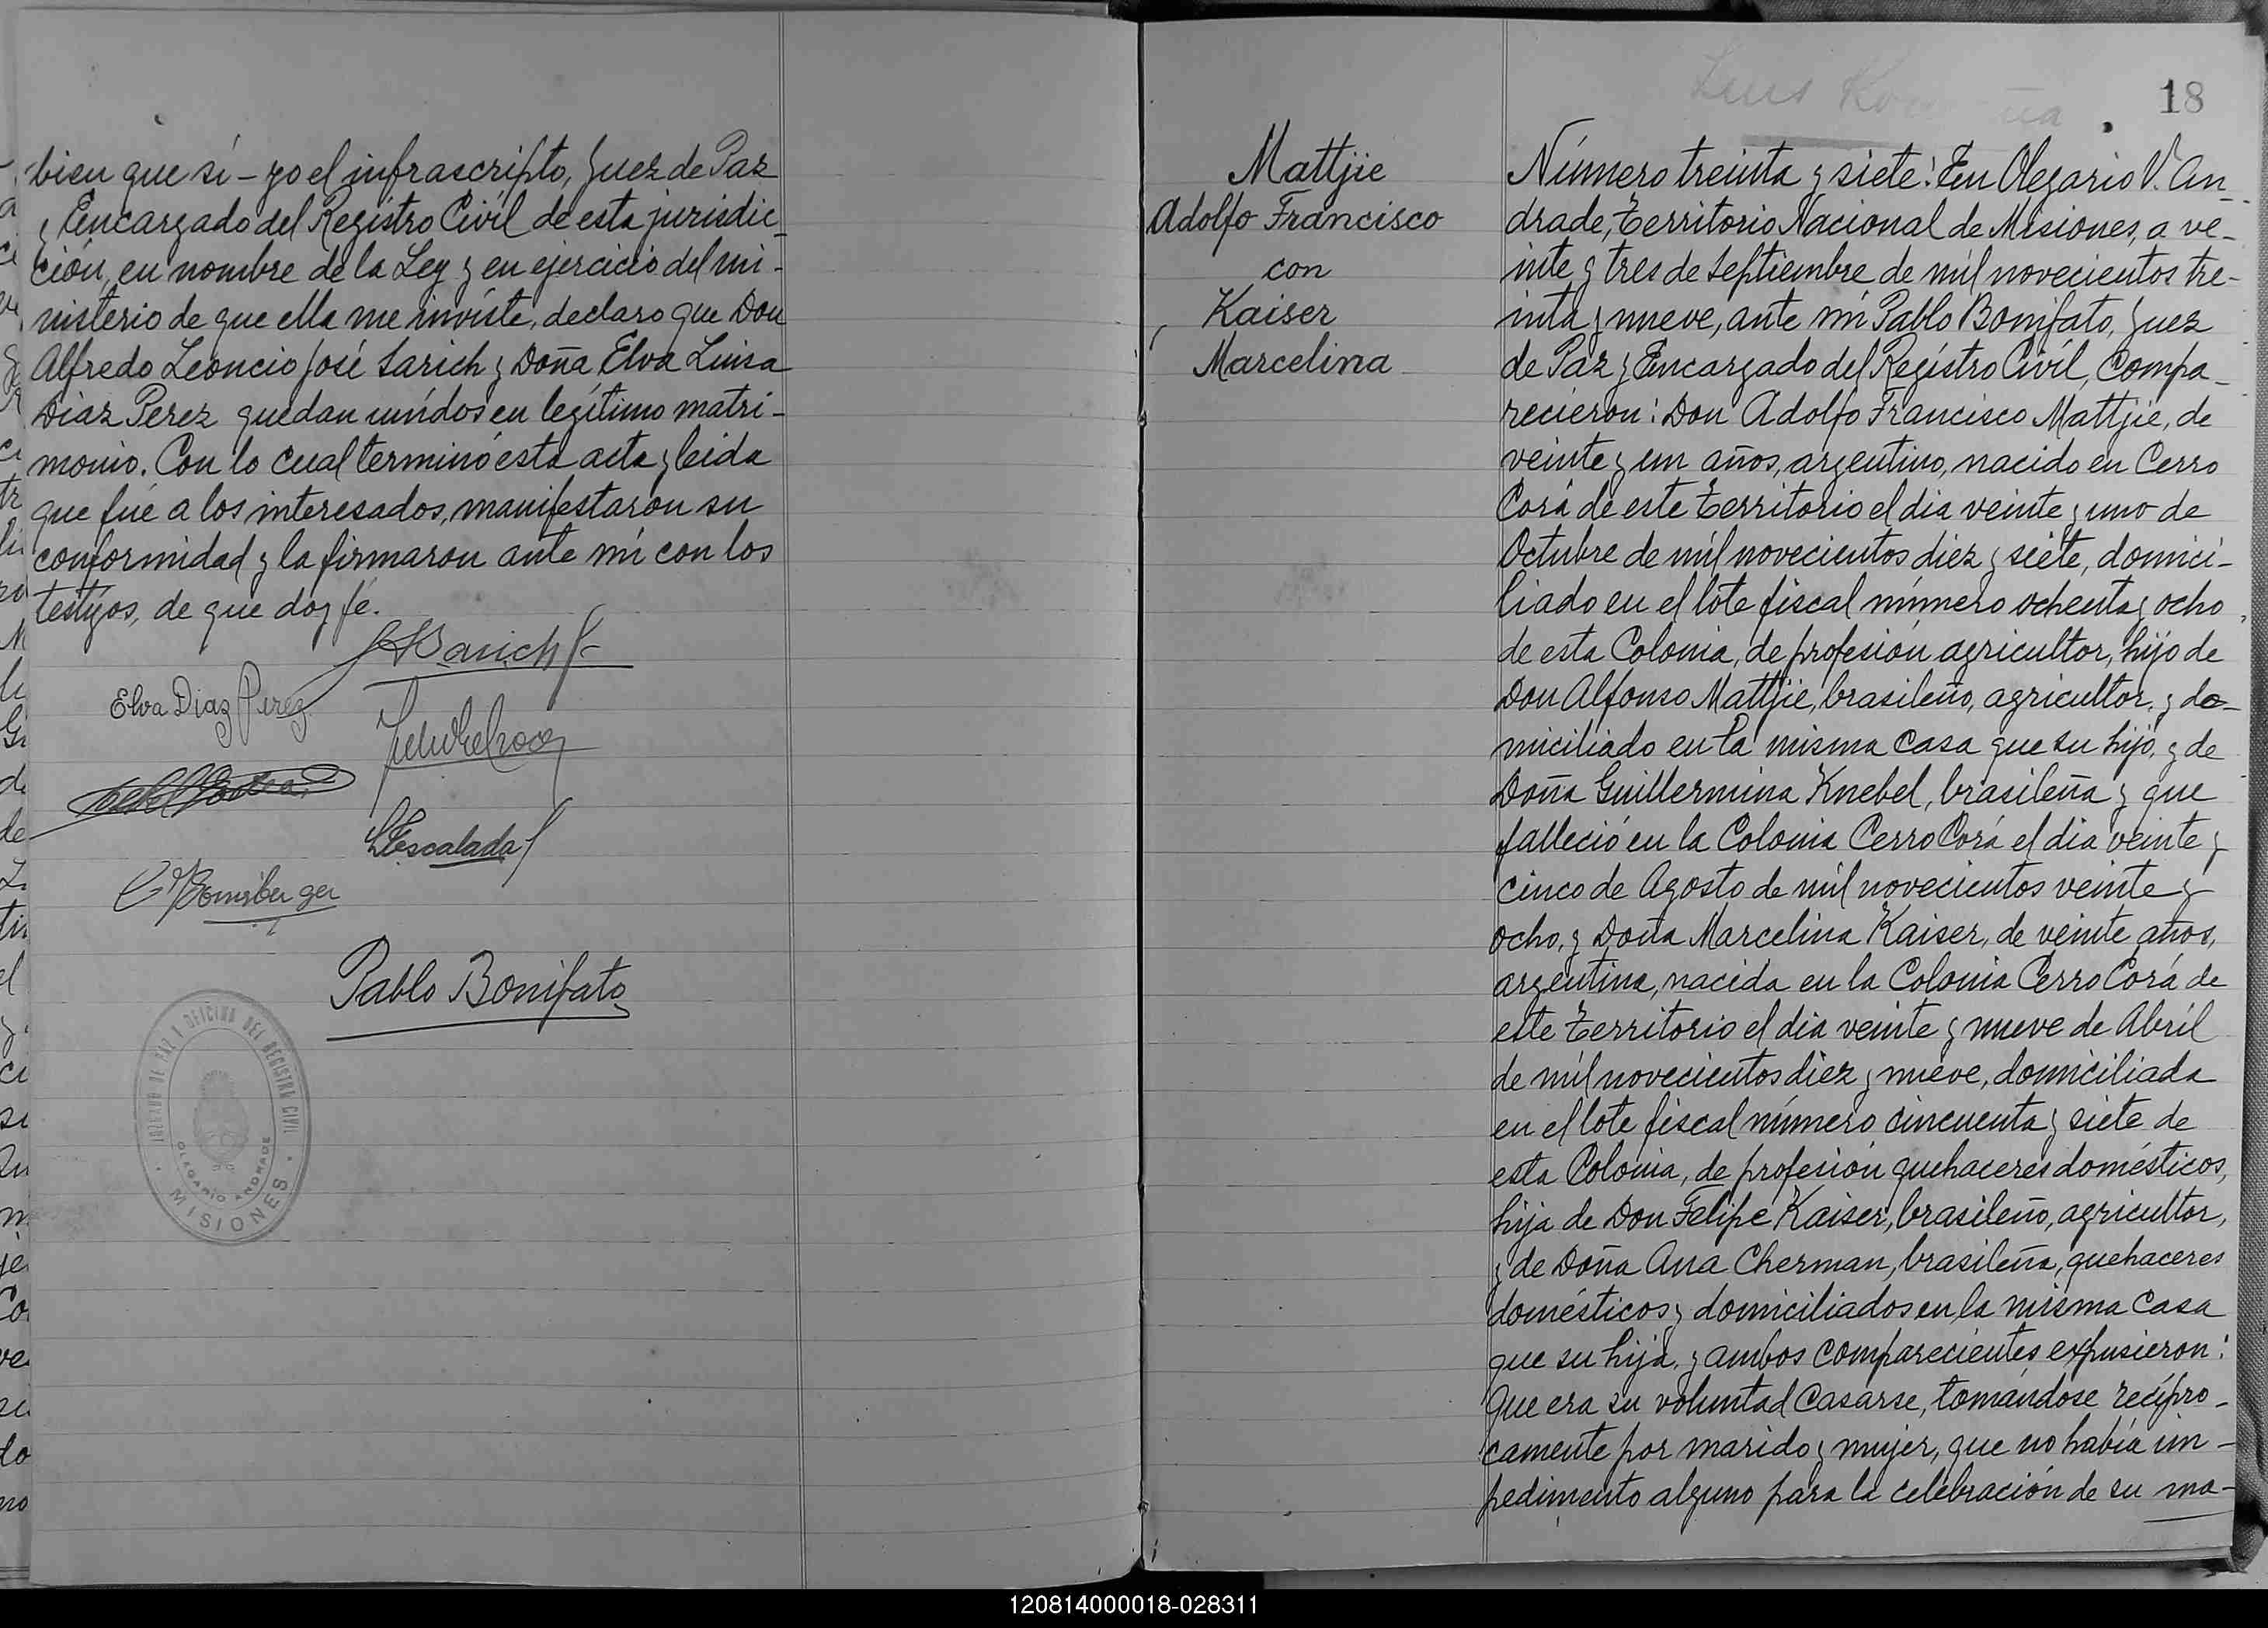 bien que sí - yo el infrascripto, Juez de Paz
y Encargado del Registro Civil de esta jurisdic-
ción, en nombre de la Ley y en ejercicio del mi-
nisterio de que ella me inviste, declaro que Don
Alfredo Leoncio José Sarich y Doña Elva Luisa
Diaz Perez quedan unidos en legítimo matri-
monio. Con lo cual terminó esta acta y leida
que fué a los interesados, manifestaron su
conformidad y la firmaron ante mí con los
testigos, de que doy fé.
Elva Diaz Perez
Escalada
Pablo Bonifato
JUZGADO DE PAZ Y OFICINA DEL REGISTRO CIVIL
OLEGARIO ANDRADE
MISIONES
18
Mattjie
Adolfo Francisco
con
Kaiser
Marcelina
Número treinta y siete: En Olegario V. An-
drade, Territorio Nacional de Misiones, a ve-
inte y tres de Septiembre de mil novecientos tre-
inta y nueve, ante mí Pablo Bonifato, Juez
de Paz y Encargado del Registro Civil, Compa-
recieron: Don Adolfo Francisco Mattjie, de
veinte y un años, argentino, nacido en Cerro
Corá de este Territorio el dia veinte y uno de
Octubre de mil novecientos diez y siete, domici-
liado en el lote fiscal número ochenta y ocho
de esta Colonia, de profesión agricultor, hijo de
Don Alfonso Mattjie, brasileño, agricultor, y do-
miciliado en la misma casa que su hijo, y de
Doña Guillermina Knebel, brasileña y que
falleció en la Colonia Cerro Corá el dia veinte y
cinco de Agosto de mil novecientos veinte y
ocho, y Doña Marcelina Kaiser, de veinte años,
argentina, nacida en la Colonia Cerro Corá de
este Territorio el dia veinte y nueve de Abril
de mil novecientos diez y nueve, domiciliada
en el lote fiscal número cincuenta y siete de
esta Colonia, de profesión quehaceres domésticos,
hija de Don Felipe Kaiser, brasileño, agricultor,
y de Doña Ana Cherman, brasileña, quehaceres
domésticos y domiciliados en la misma casa
que su hija, y ambos comparecientes expusieron:
Que era su voluntad casarse, tomándose recípro-
camente por marido y mujer, que no había im-
pedimento alguno para la celebración de su ma-
120814000018-028311